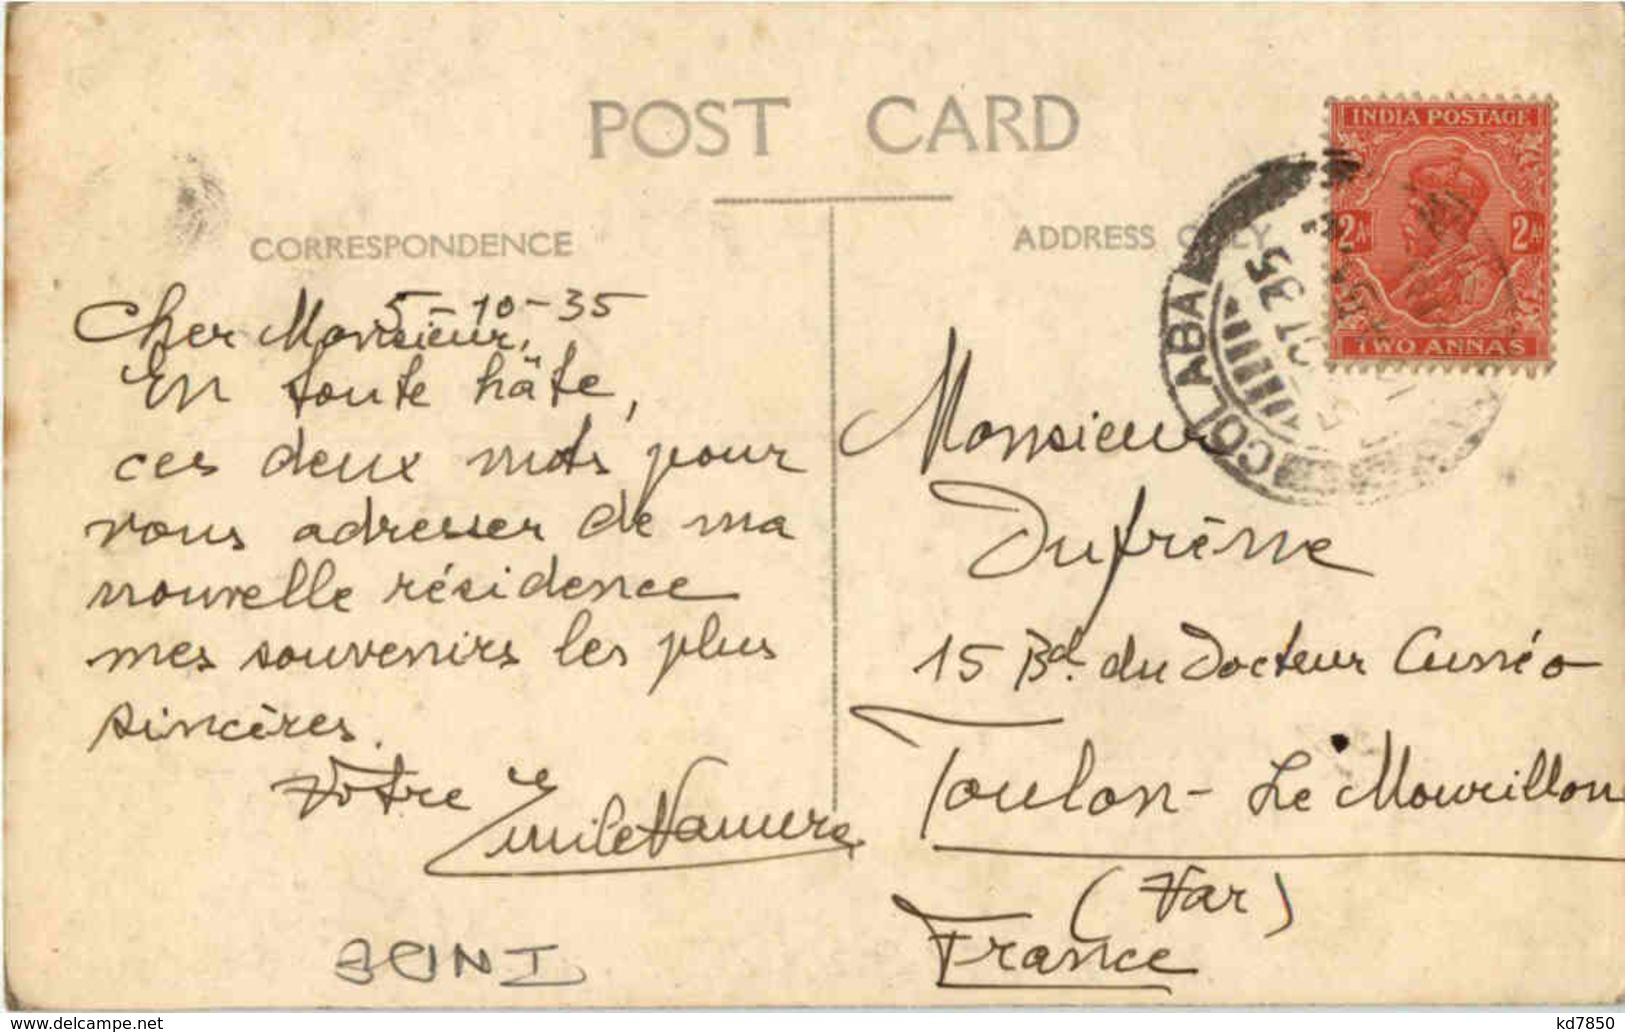 POST CARD
CORRESPONDENCE
5-10-35
Cher Monsieur,
En toute hâte,
ces deux mots pour
vous adresser de ma
nouvelle résidence
mes souvenirs les plus
sincères.
Votre
Emile
INDE
ADDRESS ONLY
INDIA POSTAGE
2As 2As
TWO ANNAS
COLABA
OCT 35
Monsieur
Dufrêne
15 Bd. du Docteur Cunéo
Toulon - Le Mourillon
(Var)
France
delcampe.net
kd7850